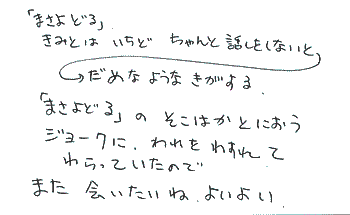 「まさよどる」
きみとは いちど ちゃんと話しをしないと
だめなようなきがする
「まさよどる」の そこはかとにおう
ジョークに、われを わすれて
わらっていたので
また 会いたいね よいよい